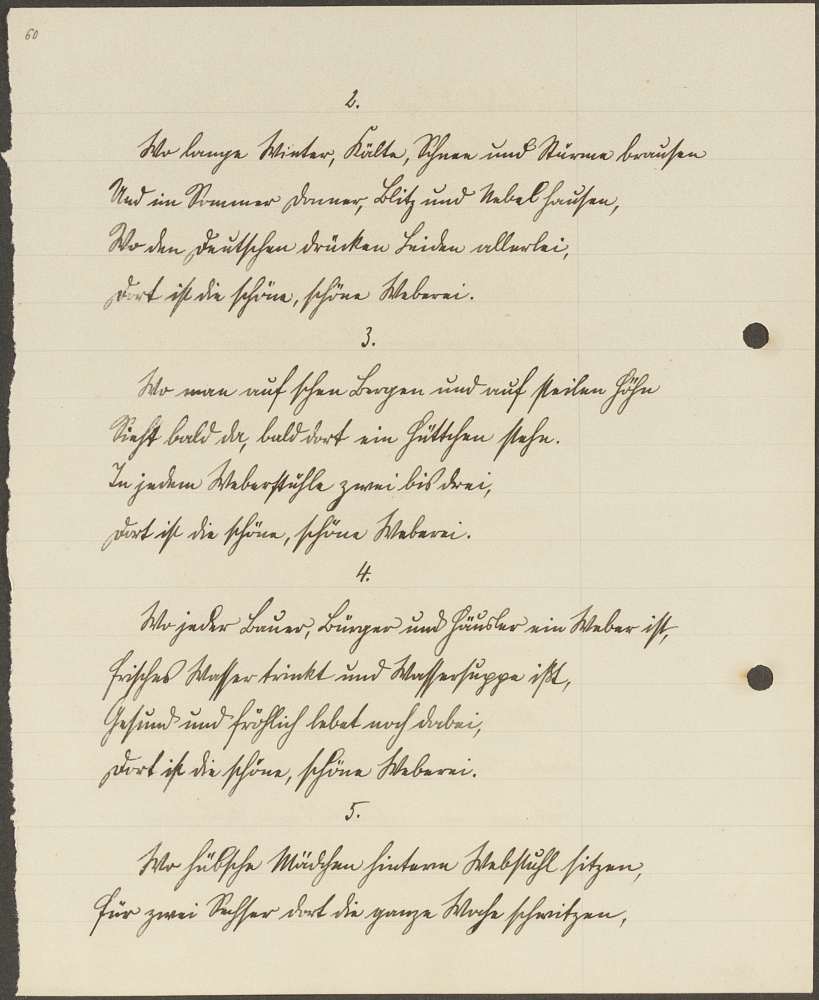 60
2.
Wo lange Winter, Kälte, Schnee und Stürme brausen
Und im Sommer Donner, Blitz und Nebel hausen,
Wo den Deutschen drücken Leiden allerlei,
Dort ist die schöne, schöne Weberei.
3.
Wo man auf schen Bergen und auf steilen Höhn
Sieht bald da, bald dort ein Hüttchen stehn.
In jedem Weberstühle zwei bis drei,
Dort ist die schöne, schöne Weberei.
4.
Wo jeder Bauer, Bürger und Häusler ein Weber ist,
Frisches Wasser trinkt und Wassersuppe ißt,
Gesund und fröhlich lebet noch dabei,
Dort ist die schöne, schöne Weberei.
5.
Wo hübsche Mädchen hinterm Webstuhl sitzen,
Für zwei Sechser dort die ganze Woche schwitzen,